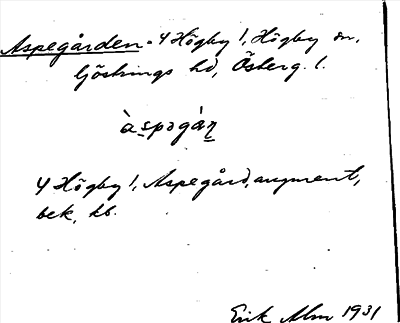 Aspegården - 4 Högby 1, Högby sn,
Göstrings hd, Österg. l.
àspəgàn̠
4 Högby 1, Aspegård, avyment,
bek, kb.
Erik Alm 1931